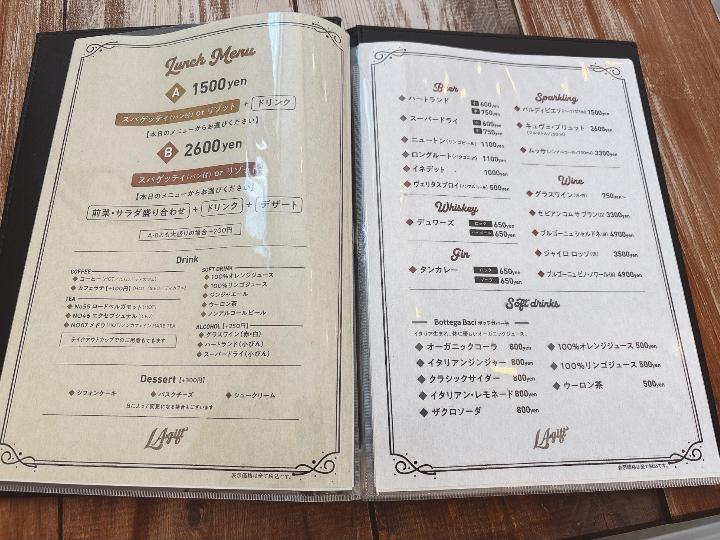 Lunch Menu
A 1500yen
スパゲッティ(パン付) or リゾット + ドリンク
【本日のメニューからお選びください】
B 2600yen
スパゲッティ(パン付) or リゾット
【本日のメニューからお選びください】
前菜・サラダ盛り合わせ + ドリンク + デザート
A・Bとも大盛りの場合+200円
Drink
COFFEE
コーヒー
カフェラテ【+100円】
TEA
No55 ロードベルガモット(HOT)
No46 エクセプショナル
No67 メドウ
テイクアウトカップでのご用意もできます
SOFT DRINK
100%オレンジジュース
100%リンゴジュース
ジンジャエール
ウーロン茶
ノンアルコールビール
ALCOHOL【+250円】
グラスワイン(赤・白)
ハートランド(小びん)
スーパードライ(小びん)
Dessert【+300円】
シフォンケーキ
バスクチーズ
シュークリーム
日によって変更になる場合もございます
LAgift
表示価格は全て税込です。
Beer
ハートランド 600yen
750yen
スーパードライ 600yen
750yen
ニュートン(リンゴビール) 1100yen
ロングルート 1100yen
イネデット 1000yen
ヴェリタスブロイ(ノンアルコール) 500yen
Whiskey
デュワーズ ロック 650yen
ハイボール 650yen
Gin
タンカレー ロック 650yen
ソーダ 650yen
Sparkling
バルディビエソ 1500yen
キュヴェ・ブリュット 2600yen
ムッサ 3300yen
Wine
グラスワイン(赤・白) 750yen~
セビアンコムサブラン(白) 3300yen
ブルゴーニュシャルドネ(白) 4900yen
ジャイロ ロッソ(赤) 3500yen
ブルゴーニュピノノワール(赤) 4900yen
Soft drinks
Bottega Baci ボッテガバーチ
イタリア生まれ、体に優しいオーガニックジュース。
オーガニックコーラ 800yen
イタリアンジンジャー 800yen
クラシックサイダー 800yen
イタリアン・レモネード 800yen
ザクロソーダ 800yen
100%オレンジジュース 500yen
100%リンゴジュース 500yen
ウーロン茶 500yen
LAgift
表示価格は全て税込です。